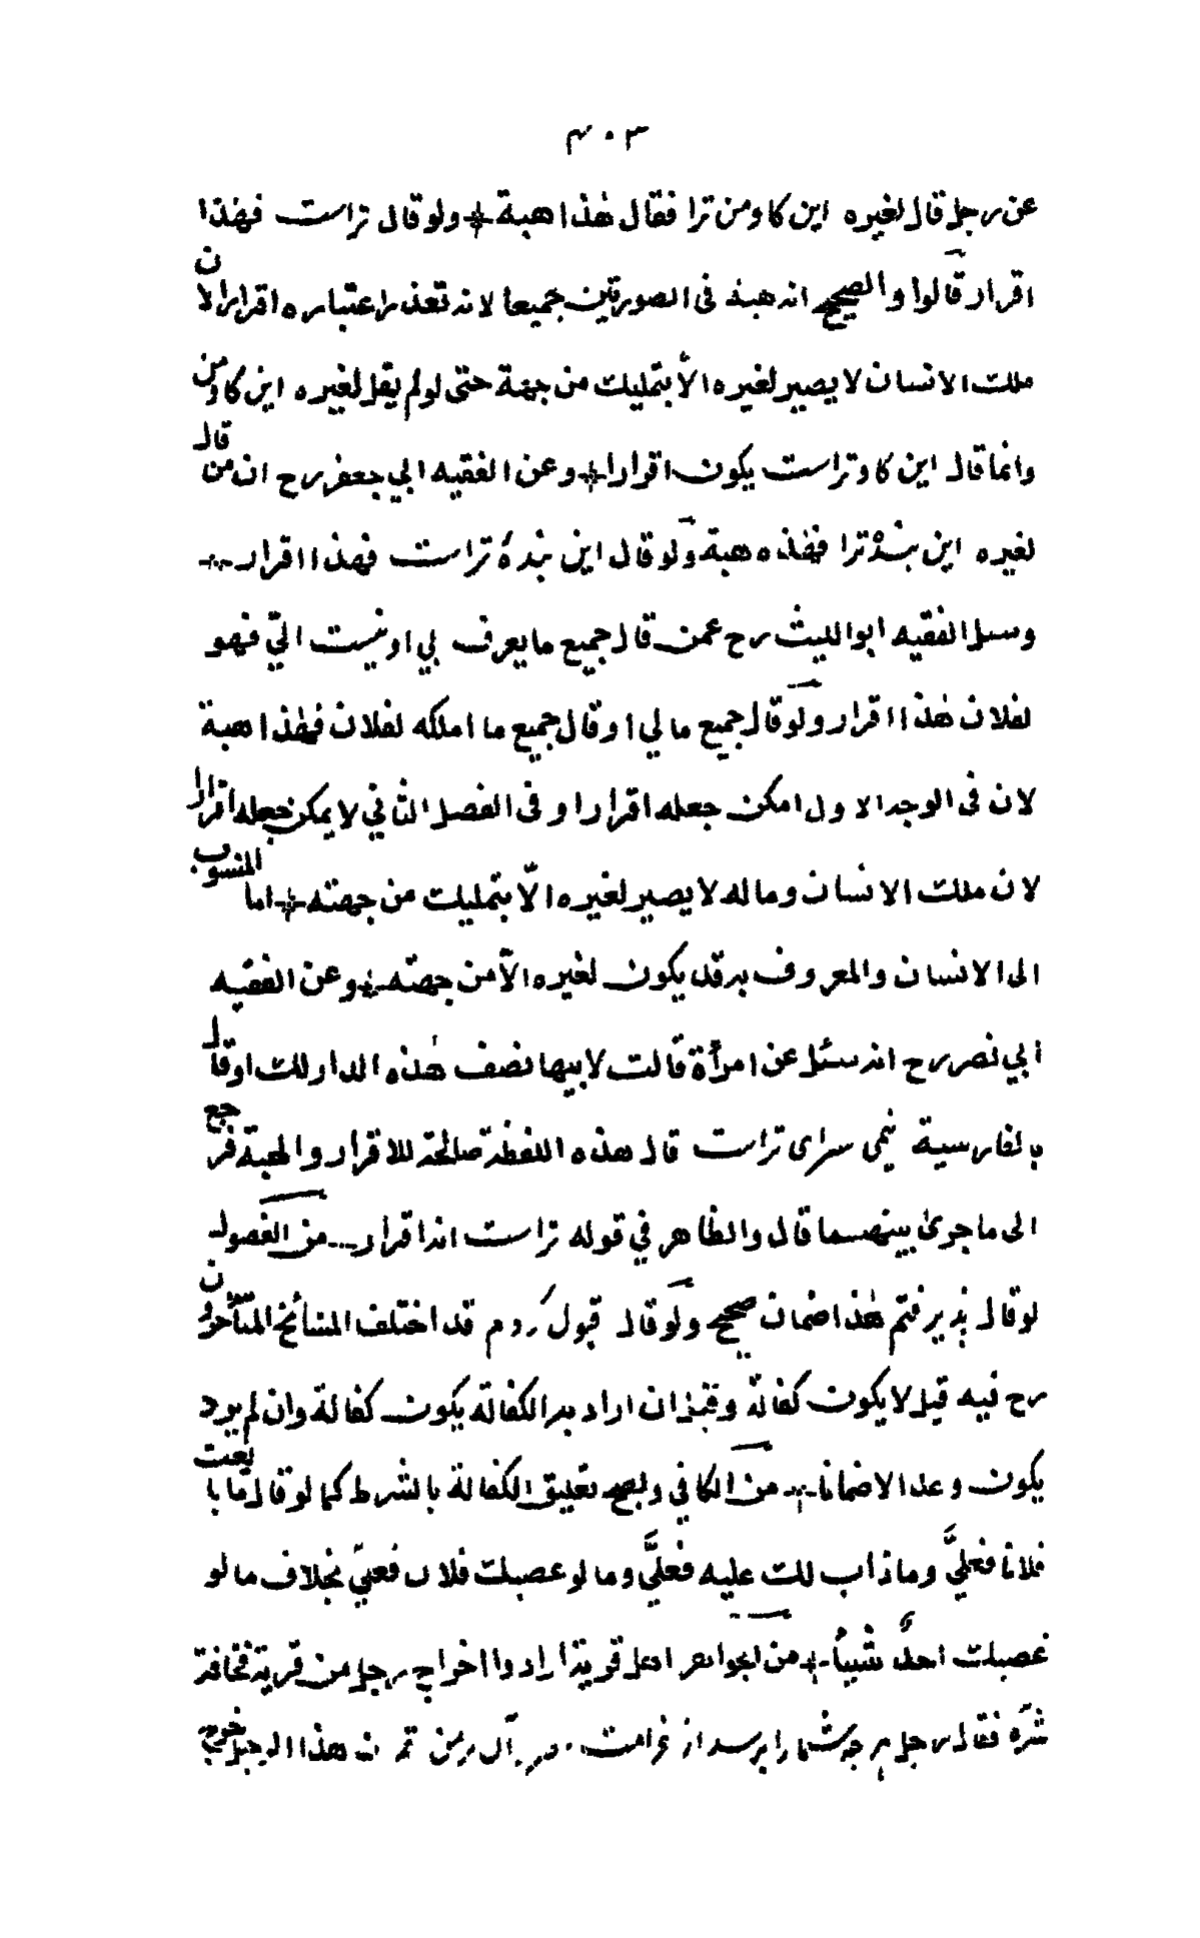 ٣٠٣
عن رجل قال لغيره اين كاو من ترا فقال هٰذا هبة ولو قال تراست فهٰذا
اقرار قالوا والصحيح انه هبة فى الصورتين جميعا لانه تعذر اعتباره اقرارا لان
ملك الانسان لا يصير لغيره الّا بتمليك من جهة حتى لو لم يقل لغيره اين كاو من
وانما قال اين كاو تراست يكون اقرارا وعن الفقيه ابي جعفر رح ان من قال
لغيره اين بنده ترا فهٰذه هبة ولو قال اين بندۀ تراست فهذا اقرار
وسل الفقيه ابو الليث رح عمن قال جميع ما يعرف لي او نيست اليّ فهو
لفلان هٰذا اقرار ولو قال جميع ما لي او قال جميع ما املكه لفلان فهٰذا هبة
لان فى الوجه الاول امكن جعله اقرارا وفى الفصل الثاني لا يمكن جعله اقرارا
لان ملك الانسان وماله لا يصير لغيره الّا بتمليك من جهته اما المنسوب
الى الانسان والمعروف به قد يكون لغيره الّا من جهته وعن الفقيه
ابي نصر رح انه سئل عن امرأة قالت لابيها نصف هٰذه الدار لك او قال
بالفارسية نيمى سراى تراست قال هذه اللفظة صالحة للاقرار والهبة فرجع
الى ما جرىٰ بينهما قال والظاهر في قوله تراست انه اقرار من الفصول
لو قال پذيرفتم هٰذا ضمان صحيح ولو قال قبول كردم قد اختلف المشائخ المتأخرون
رح فيه قيل لا يكون كفالة وقيل ان اراد به الكفالة يكون كفالة وان لم يرد
يكون وعدا لا ضمانا من الكافي ويصح تعليق الكفالة بالشرط كما لو قال ما بايعت
فلانا فعليَّ وما ذاب لك عليه فعليَّ وما لو غصبك فلان فعليّ بخلاف ما لو
غصبك احدٌ شيأ من الجواهر اهل قرية ارادوا اخراج رجل من قرية مخافة
شره فقال رجل هر چه شما را برسد از غرامت آن بر من هذا الرجل